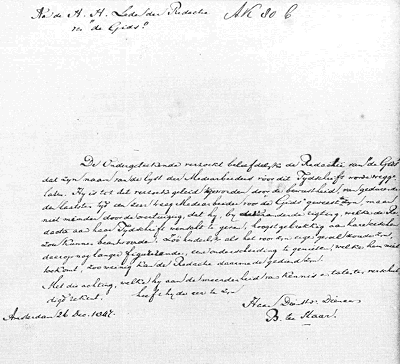 Aan de H. H. Leden der Redactie AK 80 b
van "de Gids"
De Ondergeteekende verzoekt beleefdelijk de Redactie van "de Gids"
dat zijn naam van de lijst der Medearbeiders voor dit Tijdschrift worde wegge-
laten. Hij is tot dit verzoek geleid geworden door de bewustheid, van gedurende
den laatsten tijd een zeer traag Medearbeider voor de Gids geweest te zijn, maar
niet minder door de overtuiging, dat hij, bij de rigting, welke de Re-
dactie aan haar Tijdschrift wenscht te geven, hoogst gebrekkig aan hare
zou kunnen beantwoorden. Zoo onderling als het voor zijn eigen gevoel zou zijn,
daarop nog langer figurerende, eene onderscheiding te genieten, welke hem niet
toekomt, zoo weinig kan de Redactie daarmede gediend zijn.
Met die achting, welke hij aan de meerderheid van kennis en talenten verschul-
digd rekent, heeft hij de eer te zijn
Haar Dienstv. Dienaar
Amsterdam 26 Dec. 1847. B. ter Haar.